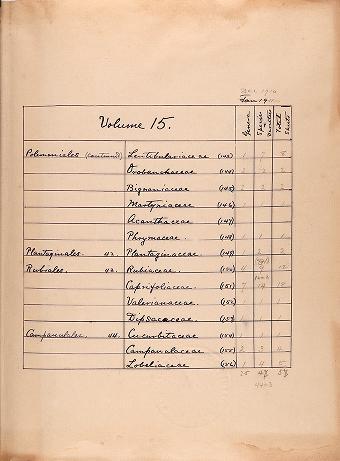 Jan 191
Volume 15.
Genera
Species & Varieties
Total Sheets
Polemoniales (continued) Lentibulariaceae (143) 1 7 8
Orobanchaceae (144) 2 2 2
Bignoniaceae (145) 2 2 2
Martyniaceae (146) 1 1
Acanthaceae (147)
Phrymaceae. (148) 1 1 1
Plantaginales. 42. Plantaginaceae (149) 2 2
Rubiales. 43. Rubiaceae (150) 4 9 12
Caprifoliaceae. (151) 7 14 18
Valerianaceae. (152) 1
Dipsacaceae. (153) 1
Campanulales. 44. Cucurbitaceae (154) 1 1
Campanulaceae (155) 2 3 4
Lobeliaceae (156) 1 4 5
25 47 57